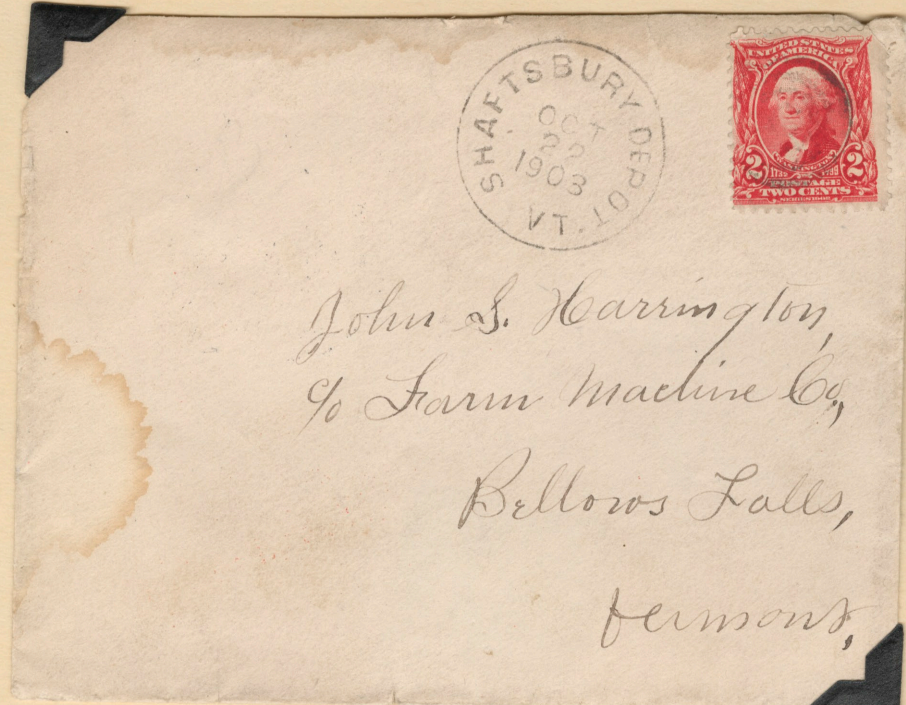 SHAFTSBURY DEPOT.
OCT
22
1903
VT.
UNITED STATES
OF AMERICA
WASHINGTON
2 1732 1799 2
POSTAGE
TWO CENTS
SERIES 1902
John S. Harrington,
c/o Farm Machine Co.,
Bellows Falls,
Vermont,